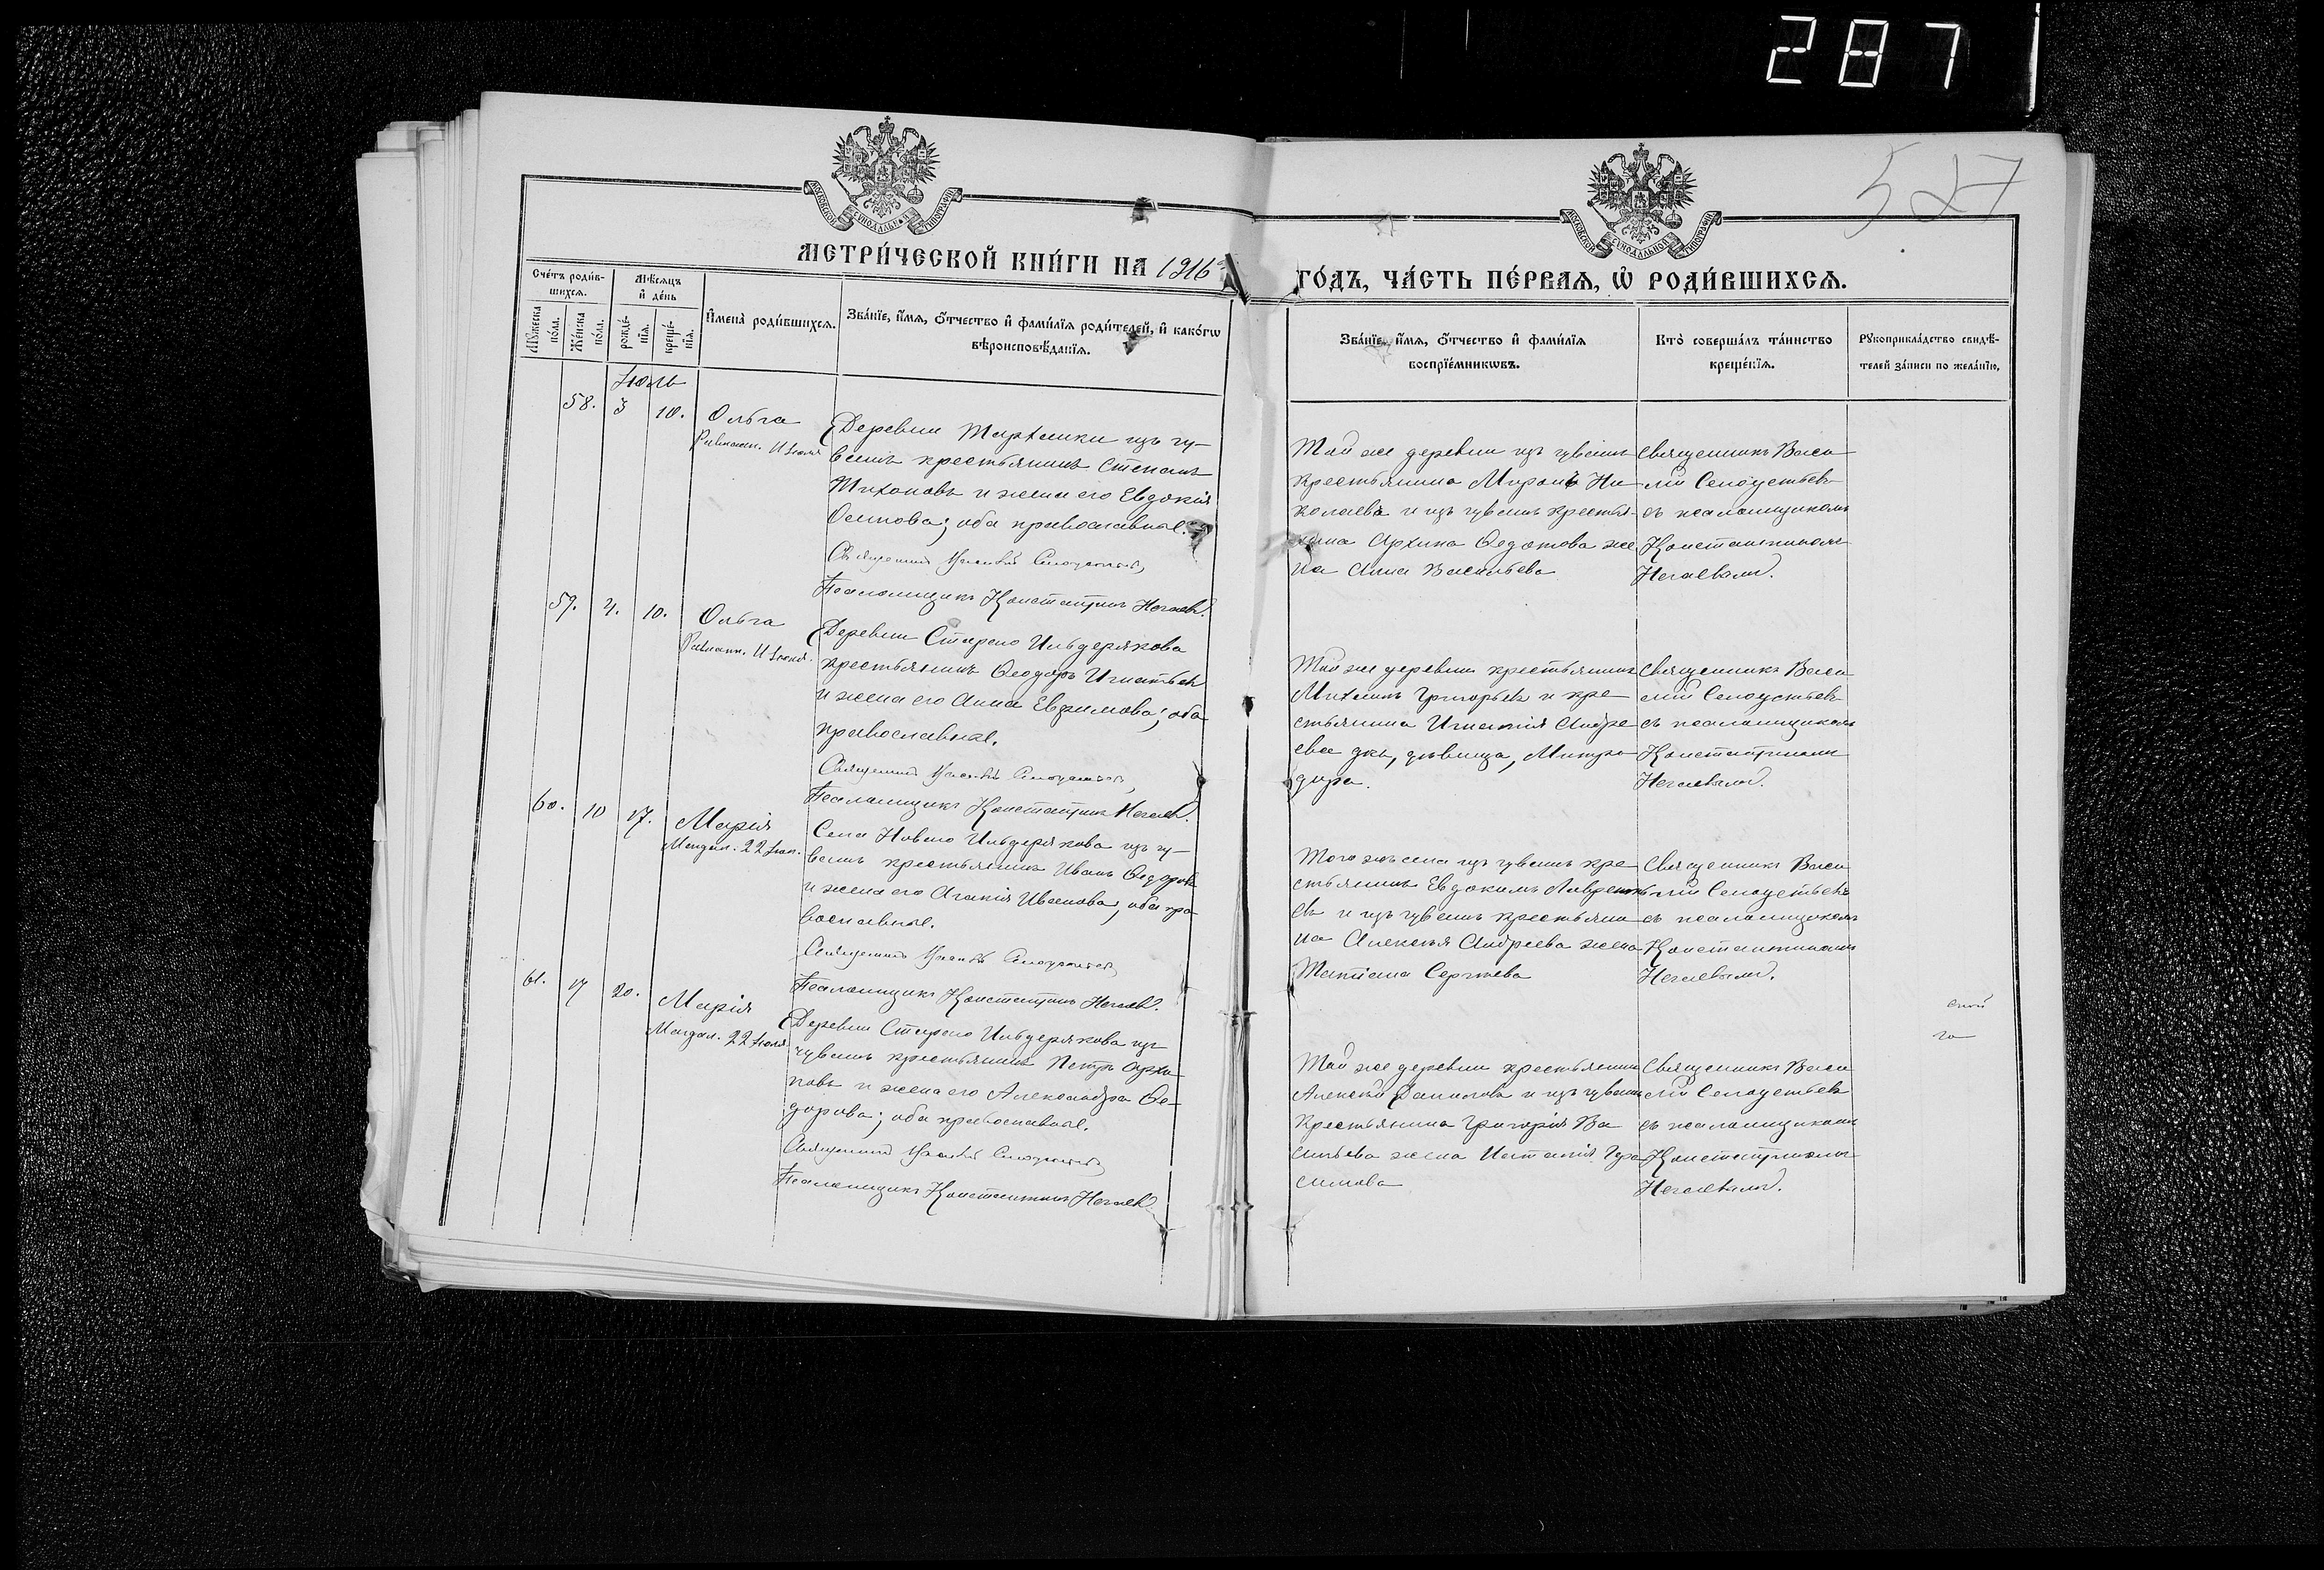 287
527
МОСКОВСКОЙ СѴНОДАЛЬНОЙ ТИПОГРАФІИ
МОСКОВСКОЙ СѴНОДАЛЬНОЙ ТИПОГРАФІИ
МЕТРИ́ЧЕСКОЙ КНИ́ГИ НА 1916 г
ГО́ДЪ, ЧА́СТЬ ПЕ́РВАЯ, Ѡ҆ РОДИ́ВШИХСЯ.
Сче́тъ роди́в-
шихся.
Мꙋжеска по́ла.
Же́нска по́ла.
Мѣ́сяцъ
и҆ де́нь
рожде́-
нїя.
креще́-
нїя.
И҆мена̀ роди́вшихся.
Зва́нїе, и҆́мя, ѻ҆́тчество и҆ фами́лїя роди́телей, и҆ како́гѡ
вѣроисповѣ́данїя.
Зва́нїе, и҆́мя, ѻ҆́тчество и҆ фами́лїя
воспрїе́мникѡвъ.
Кто̀ соверша́лъ та́инство
креще́нїя.
Рꙋкоприкла́дство свидѣ́-
телей за́писи по жела́нїю.
Іюль
58. 3 10. Ольга
Равноап. 11 Іюля
Деревни Тарханки изъ чу-
вашъ крестьянинъ Степанъ
Тихоновъ и жена его Евдокія
Осипова; оба православные.
Священникъ Василій Селоустьев
Псаломщикъ Константинъ Нечаевъ.
Той же деревни изъ чувашъ
крестьянина Миронъ Ни-
колаевъ и изъ чувашъ крестья-
нина Архипа Ѳедотова же
на Анна Васильева
Священникъ Васи
лій Селоустьевъ
съ псаломщикомъ
Константиномъ
Нечаевымъ.
59. 4. 10. Ольга
Равноап. 11 Іюля.
Деревни Стараго Ильдерякова
крестьянинъ Ѳеодоръ Игнатьевъ
и жена его Анна Евфимова; оба
православные.
Священникъ Василій Селоустьев
Псаломщикъ Константинъ Нечаевъ.
Той же деревни крестьянинъ
Михаилъ Григорьевъ и кре
стьянина Игнатія Андре
ева дчь, дѣвица, Митро
дора.
Священникъ Васи
лій Селоустьевъ
съ псаломщикомъ
Константиномъ
Нечаевымъ.
60. 10 17. Марія
Магдал. 22 Іюл.
Села Новаго Ильдерякова изъ чу-
вашъ крестьянинъ Иванъ Ѳедоровъ
и жена его Агапія Иванова; оба пра
вославные.
Священникъ Василій Селоустьев
Псаломщикъ Константинъ Нечаевъ.
Того же села изъ чувашъ кре
стьянинъ Евдокимъ Лаврентье
въ и изъ чувашъ крестьяни
на Алексѣя Андреева жена
Татіана Сергѣева
Священникъ Васи
лій Селоустьевъ
съ псаломщикомъ
Константиномъ
Нечаевымъ.
61. 17 20. Марія
Магдал. 22 Іюля
Деревни Стараго Ильдерякова изъ
чувашъ крестьянинъ Петръ Архи
повъ и жена его Александра Ѳе-
дорова; оба православные.
Священникъ Василій Селоустьев
Псаломщикъ Константинъ Нечаевъ
Той же деревни крестьянинъ
Алексѣй Даниловъ и изъ чувашъ
крестьянина Григорія Ва
сильева жена Наталія Гера
симова
Священникъ Васи
лій Селоустьевъ
съ псаломщикомъ
Константиномъ
Нечаевымъ.
го